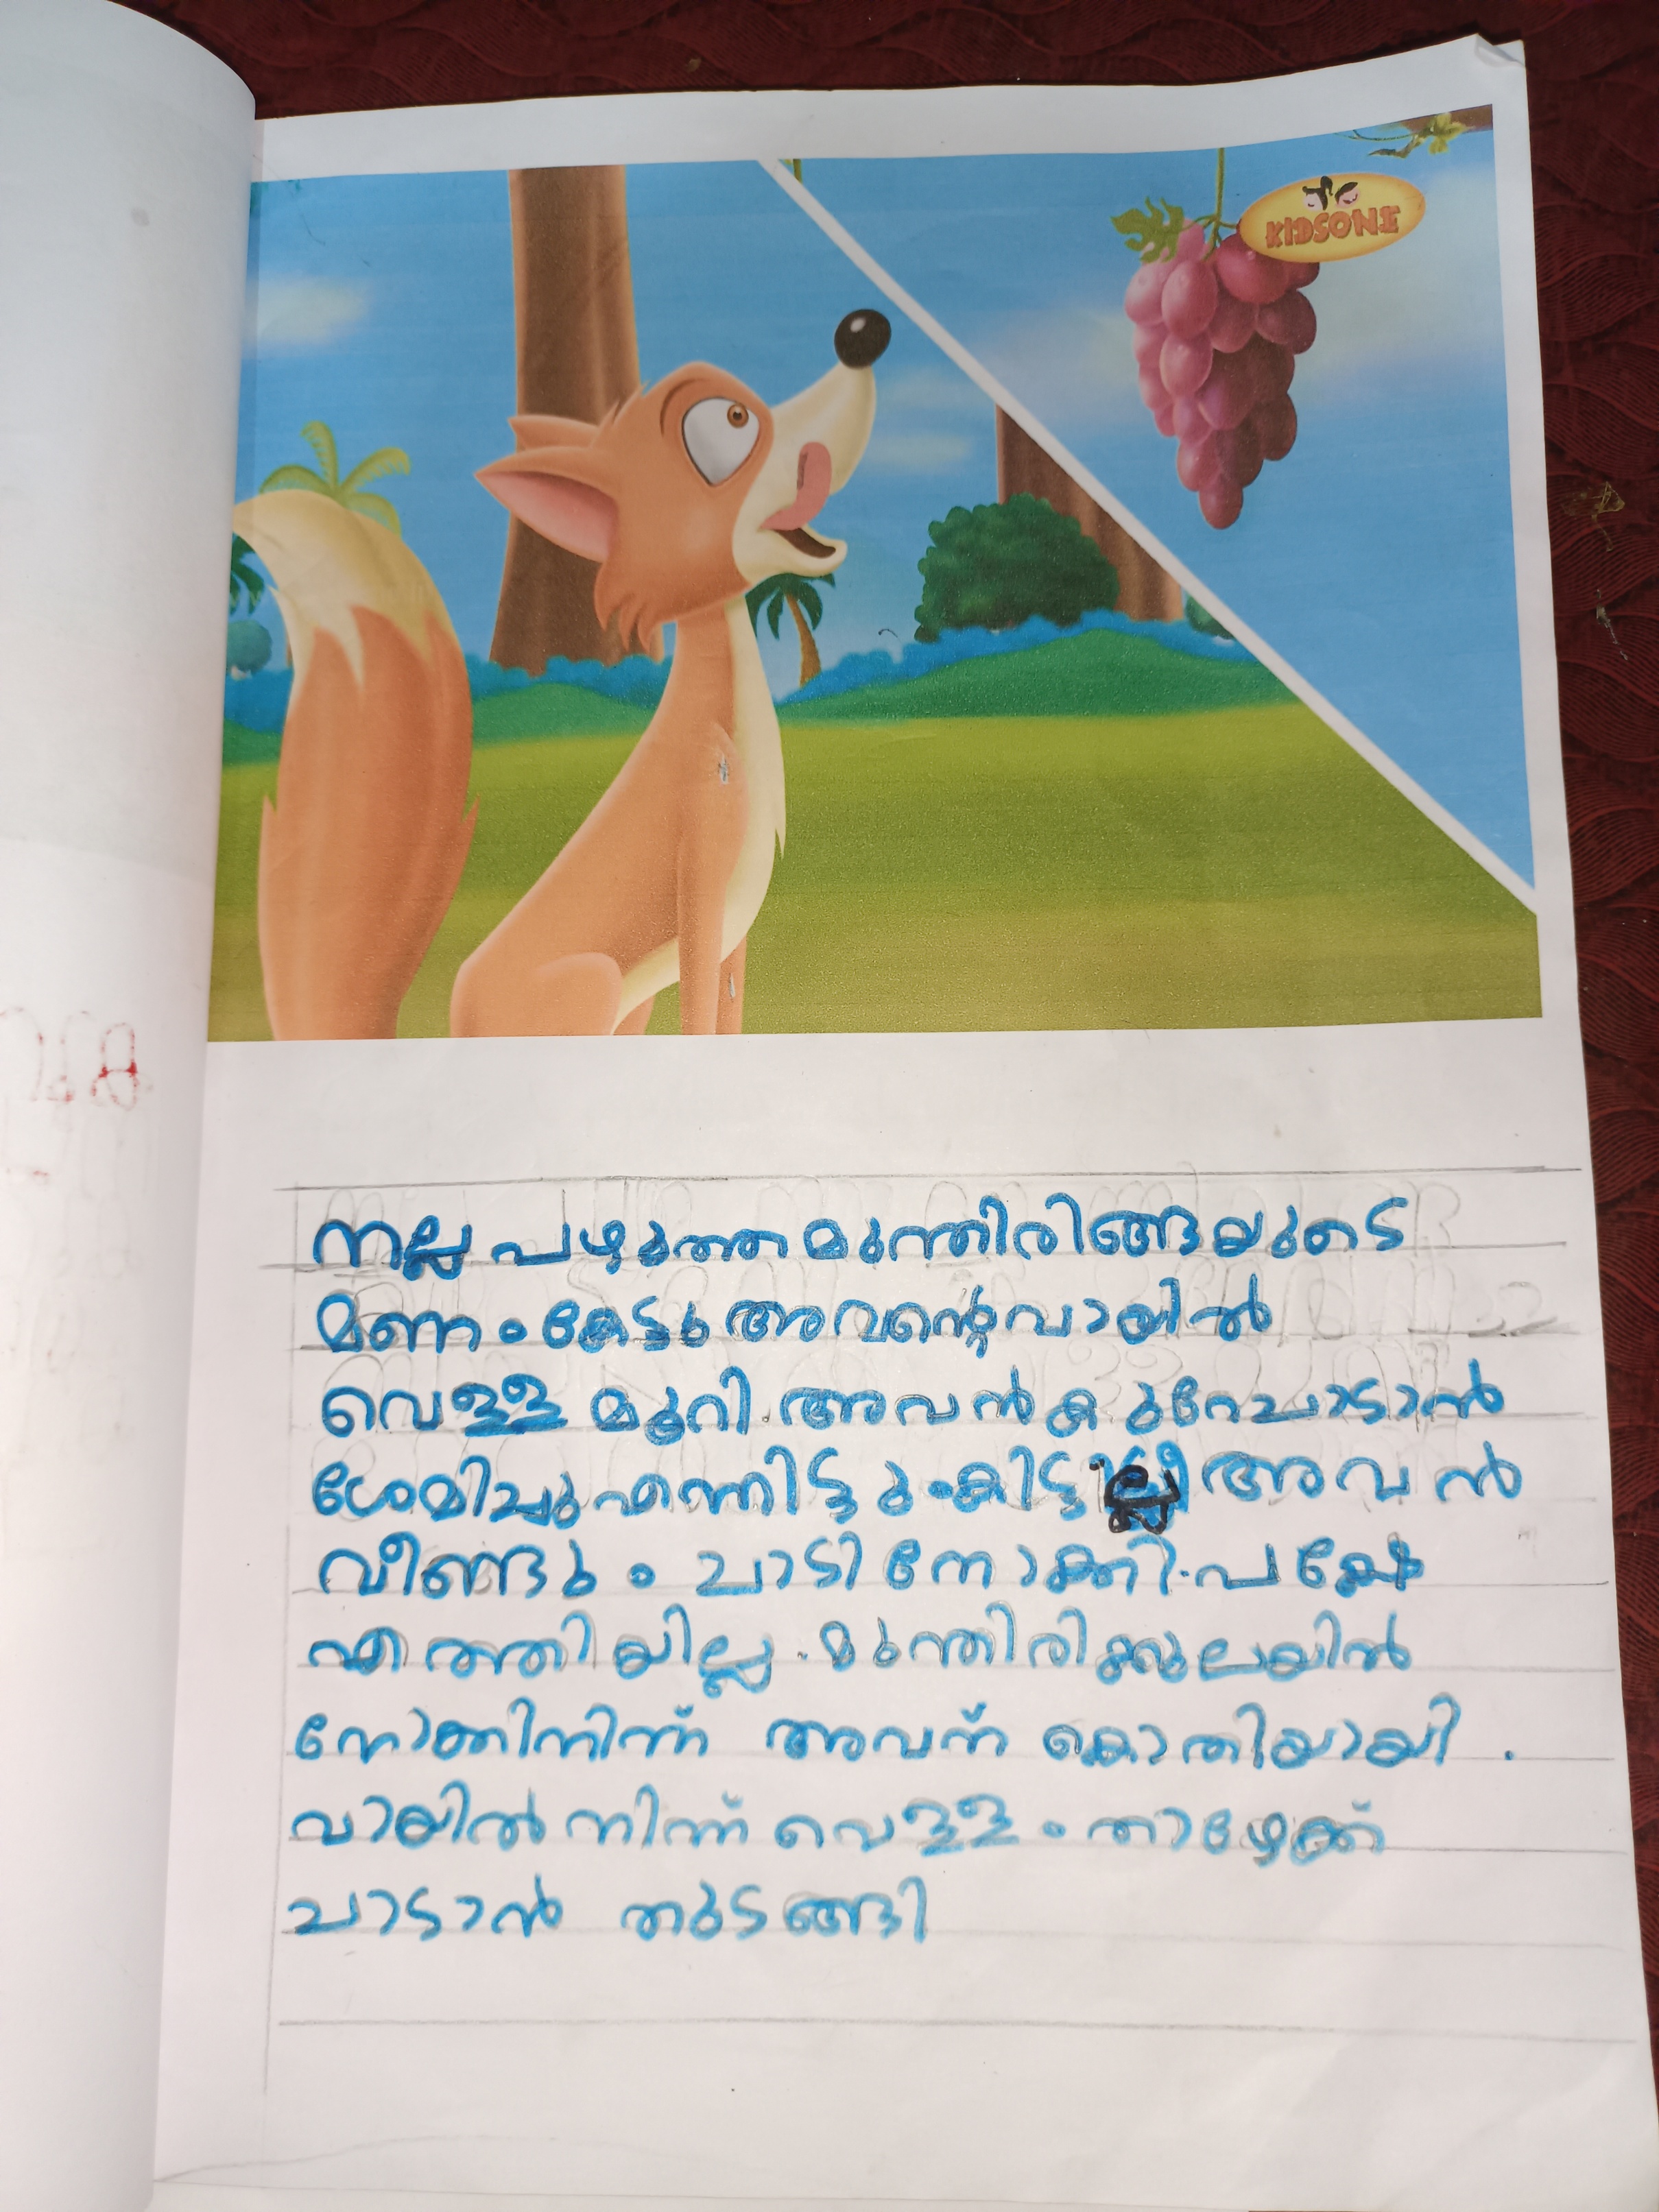 KIDSONE
നല്ല പഴുത്ത മുന്തിരിങ്ങയുടെ
മണം കേട്ടു അവന്റെ വായിൽ
വെള്ള മൂറി. അവൻ കുറേ ചാടാൻ
ശ്രമിച്ചു എന്നിട്ടും കിട്ടില്ല അവൻ
വീണ്ടും ചാടി നോക്കി. പക്ഷേ
എത്തിയില്ല. മുന്തിരിക്കുലയിൽ
നോക്കിനിന്ന് അവന് കൊതിയായി.
വായിൽ നിന്ന് വെള്ളം താഴേക്ക്
ചാടാൻ തുടങ്ങി